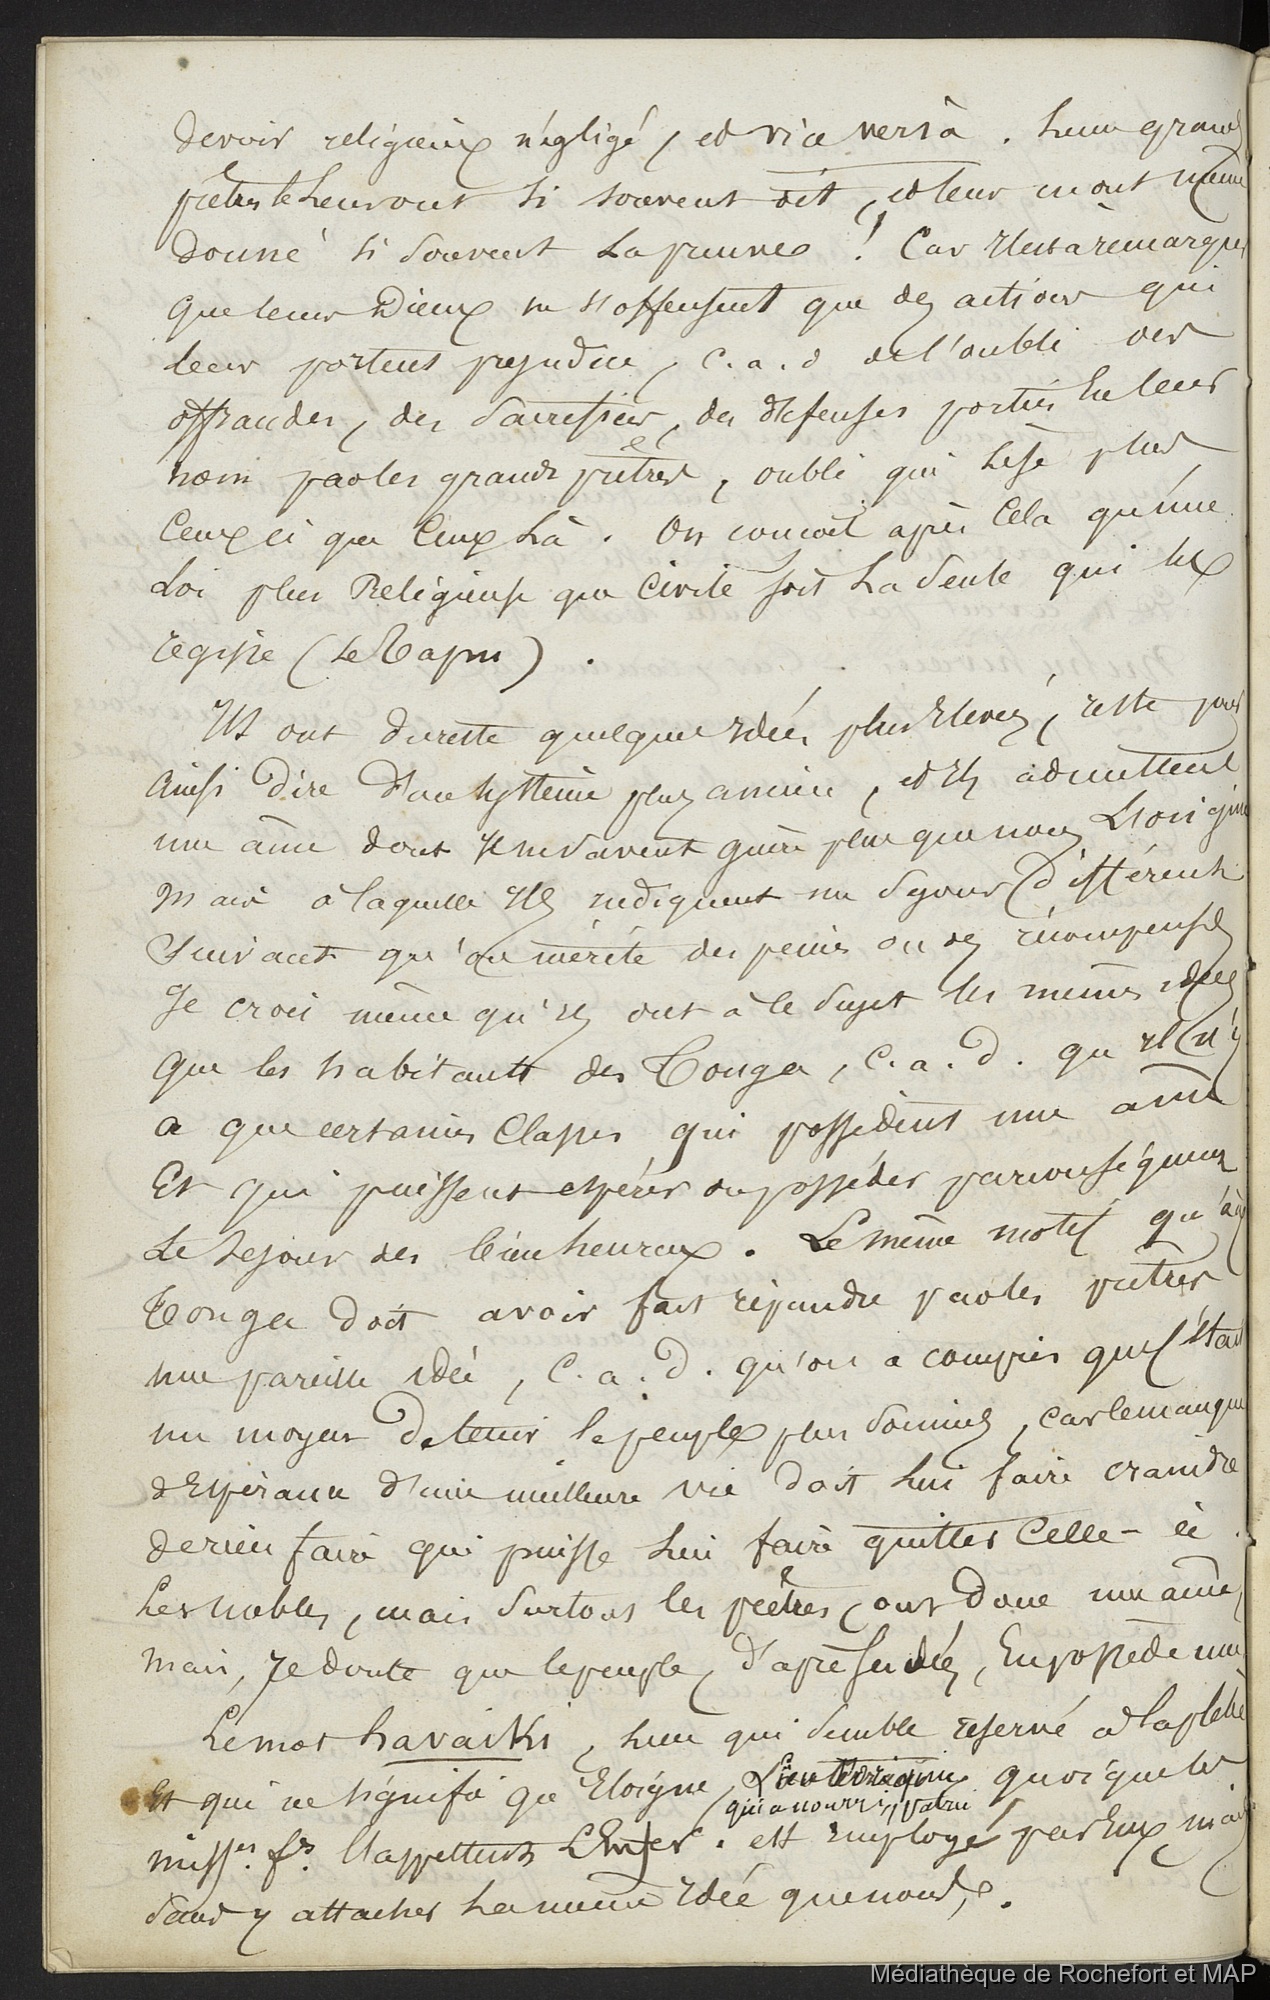 devoir religieux négligé, et vice versà. Leurs grands
prêtres le leur ont si souvent dit, et leur en ont même
donné si souvent la preuve ! Car il est à remarquer
que leurs Dieux ne s'offensent que des actions qui
leur portent préjudice, c.a.d de l'oubli des
offrandes, des sacrifices, des défenses portées en leur
nom par les grands prêtres, oubli qui lèse plus
ceux ci que ceux là. On conçoit après cela qu'une
Loi plus Religieuse que Civile soit la seule qui les
regisse (le Tapu).
Ils ont du reste quelques idées plus élevées, reste pour
ainsi dire d'un système plus ancien, et ils admettent
une âme dont ils ne savent guère plus que nous l'origine
mais à laquelle ils indiquent un séjour différent
suivant qu'on mérite des peines ou des récompenses
Je crois même qu'ils ont à ce sujet les mêmes idées
que les habitants des Tonga, c.a.d. qu'il n'y
a que certaines Classes qui possèdent une âme
Et qui puissent espérer ou posséder par conséquent
le séjour des bienheureux. Le même motif qu'aux
Tonga doit avoir fait répandre par les prêtres
une pareille idée, C.a.d. qu'on a compris que c'était
un moyen de tenir le peuple plus soumis, car le manque
d'espérance d'une meilleure vie doit lui faire craindre
de rien faire qui puisse lui faire quitter celle-ci.
Les nobles, mais surtout les prêtres, ont donc une âme,
mais, je doute que le peuple, d'après ses idées, en possède une
Le mot havaiki, lieu qui semble reservé à la plèbe
Et qui ne signifie qu'Eloigné, Lieu d'origine quoique les
qui a nourri,
miss.rs f.s l'appellent L'Enfer. est employé par Eux mais
sans y attacher la même idée que nous.
Médiathèque de Rochefort et MAP